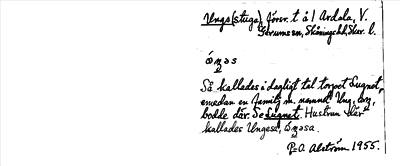 Ungs(stuga) förr. t å 1 Ardala, V.
Gerumsen, Skånings hd, Skar. l.
Så kallades i dagligt tal torpet Lugnet,
emedan en familj m. namnet Ung, Ung,
bodde där. Se Lugnet. Hustrun där
kallades Ungesa,
P.O. Alström 1955.